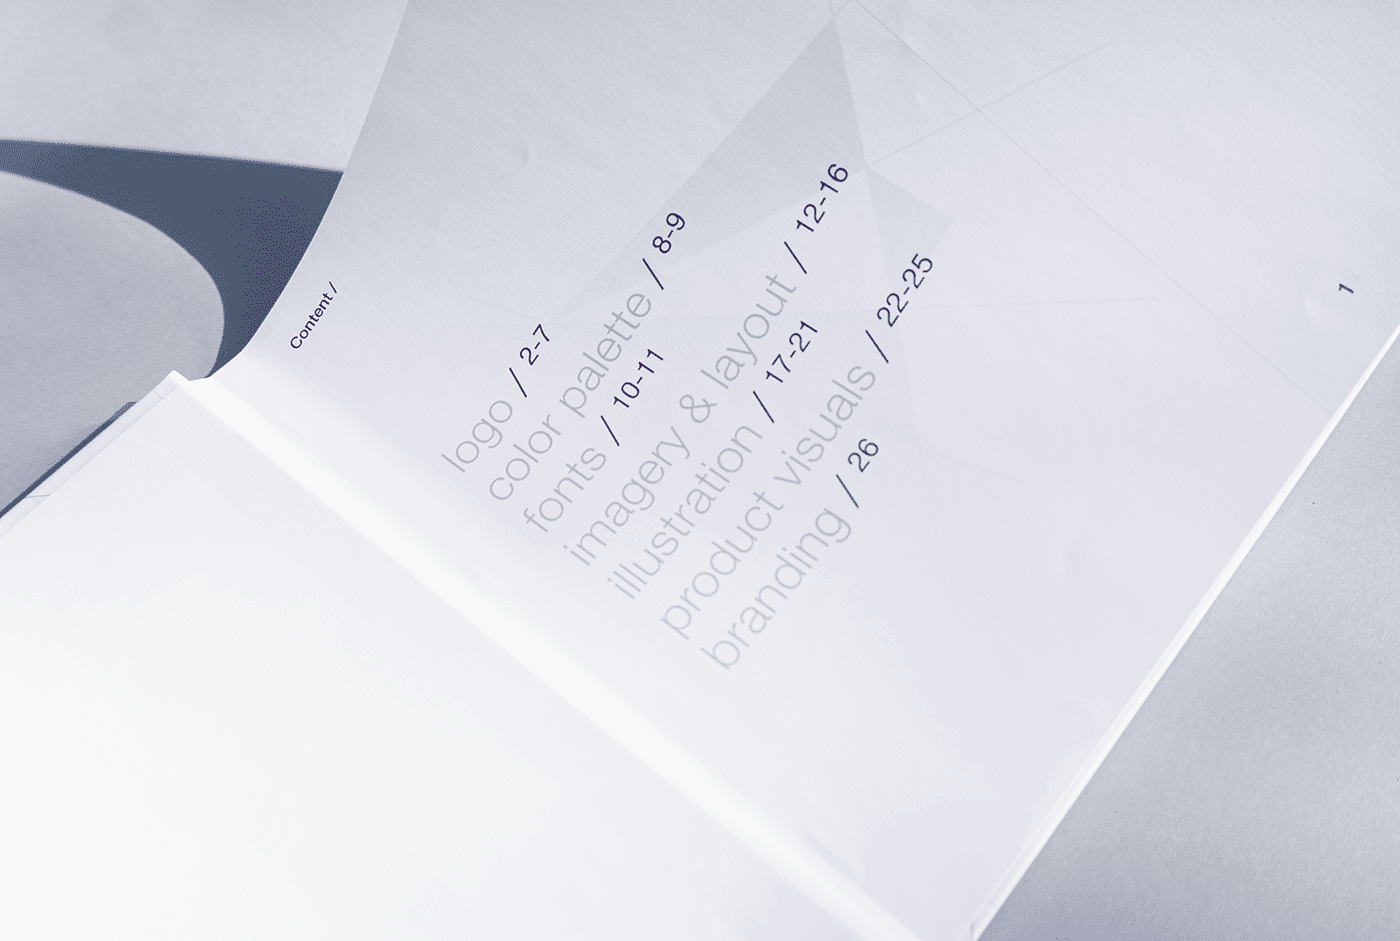 Content /
logo / 2-7
color palette / 8-9
fonts / 10-11
imagery & layout / 12-16
illustration / 17-21
product visuals / 22-25
branding / 26
1